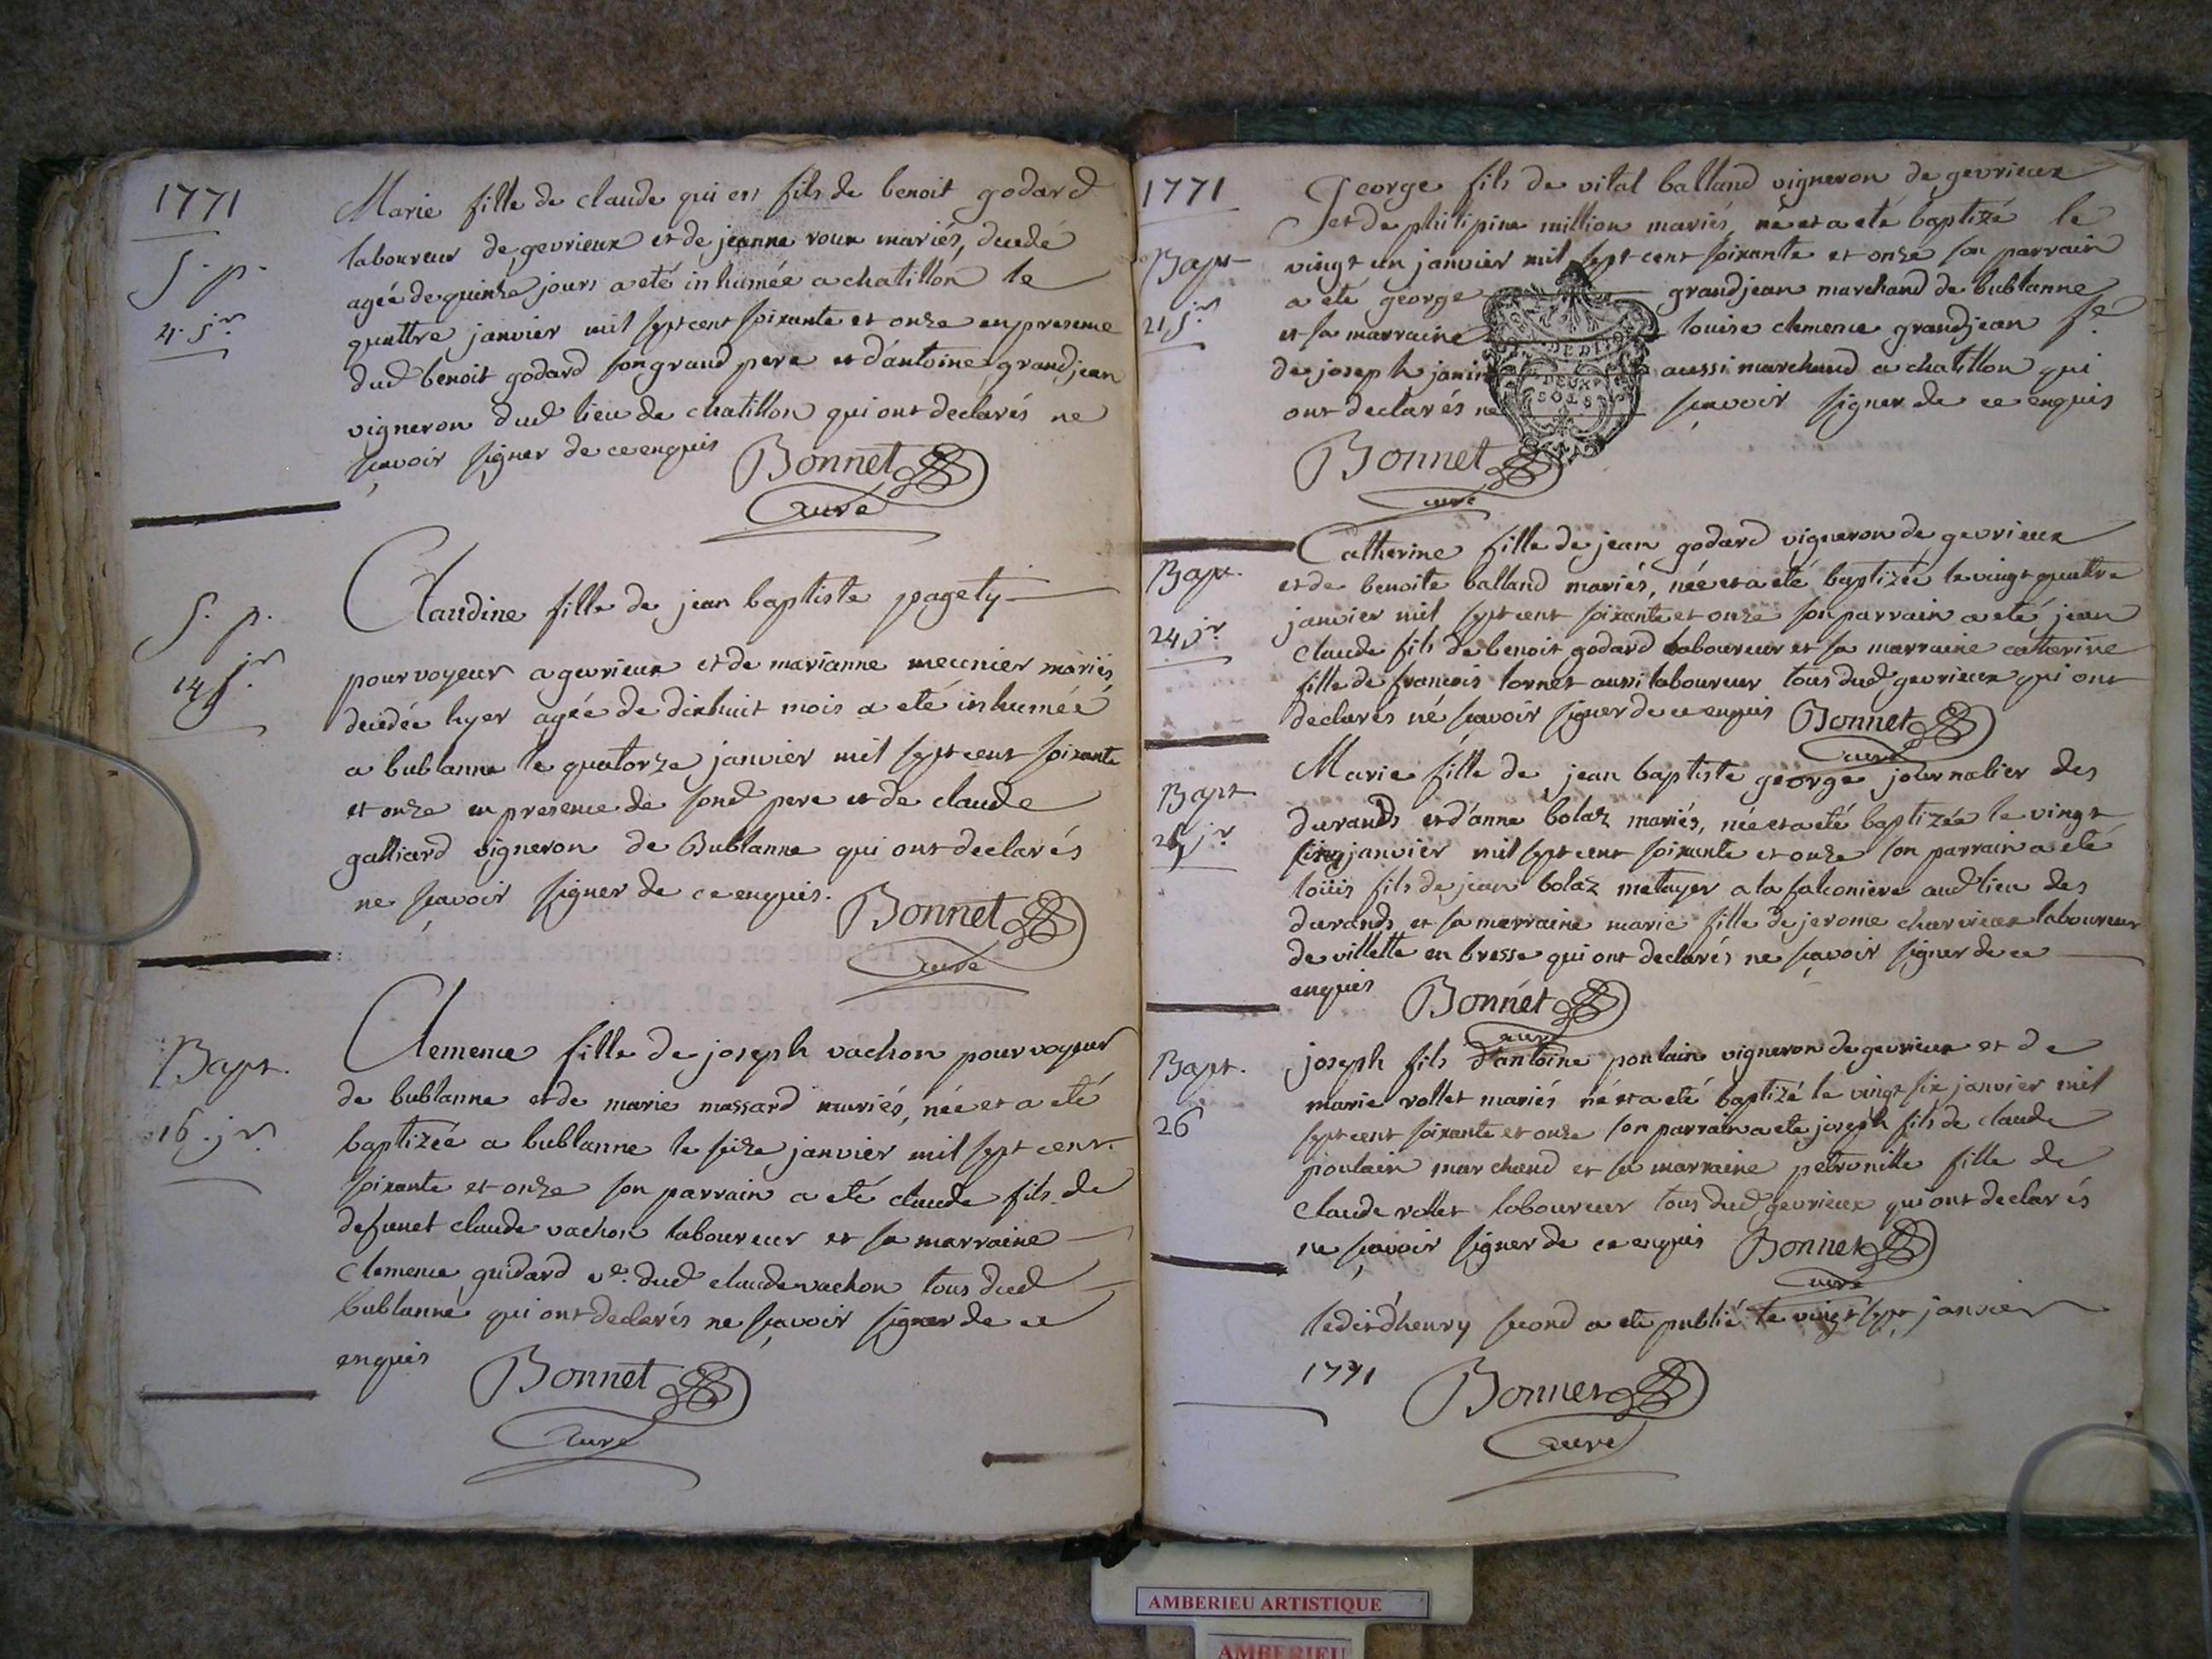 1771
S. p.
4. jr
Marie fille de claude qui est fils de benoit godard
laboureur de gevrieux et de jeanne roux mariés, decedé
agée de quinze jours a eté inhumée a chatillon le
quattre janvier mil sept cent soixante et onze en presence
dud benoit godard son grand pere et d'antoine grandjean
vigneron dud lieu de chatillon qui ont declarés ne
sçavoir signer de ce enquis Bonnet
Curé
S. p.
14 jr
Claudine fille de jean baptiste pagety
pourvoyeur a gevrieux et de marianne meunier mariés
decedée hyer agée de dixhuit mois a eté inhumée
a bublanne le quatorze janvier mil sept cent soixante
et onze en presence de sond pere et de claude
galliard vigneron de Bublanne qui ont declarés
ne sçavoir signer de ce enquis. Bonnet
Curé
Bapt.
16. jr
Clemence fille de joseph vachon pourvoyeur
de bublanne et de marie massard mariés, née et a eté
baptizée a bublanne le seize janvier mil sept cent
soixante et onze son parrain a eté claude fils de
defunct claude vachon laboureur et sa marraine
Clemence guidard ve. dud claude vachon tous dud
bublanne qui ont declarés ne sçavoir signer de ce
enquis Bonnet
Curé
1771
Bapt
21 jr
George fils de vital balland vigneron de gevrieux
et de philipine million mariés, né et a eté baptizé le
vingt un janvier mil sept cent soixante et onze son parrain
a eté george grandjean marchand de bublanne
et sa marraine louise clemence grandjean fe
de joseph janin aussi marchand a chatillon qui
ont declarés ne sçavoir signer de ce enquis
DEUX
SOLS
Bonnet
curé
Bapt.
24 jr
Catherine fille de jean godard vigneron de gevrieux
et de benoite balland mariés, née et a eté baptizée le vingt quatre
janvier mil sept cent soixante et onze son parrain a eté jean
claude fils de benoit godard laboureur et sa marraine catherine
fille de francois tornet aussi laboureur tous dud gevrieux qui ont
declarés né sçavoir signer de ce enquis Bonnet
curé
Bapt
25 jr
Marie fille de jean baptiste george journalier des
durands et d'anne bolaz mariés, née et a eté baptizée le vingt
cinq janvier mil sept cent soixante et onze son parrain a eté
loüis fils de jean bolaz metayer a la falconiere aud lieu des
durands et sa marraine marie fille de jerome charvieux laboureur
de villette en bresse qui ont declarés ne sçavoir signer de ce
enquis Bonnet
curé
Bapt.
26
joseph fils d'antoine poulain vigneron de gevrieux et de
marie vollet mariés né et a eté baptizé le vingt six janvier mil
sept cent soixante et onze son parrain a eté joseph fils de claude
poulain marchand et sa marraine petronille fille de
Claude vollet laboureur tous dud gevrieux qui ont declarés
ne sçavoir signer de ce enquis Bonnet
curé
ledit d'henry second a eté publié le vingt sept janvier
1771 Bonnet
Curé
AMBERIEU ARTISTIQUE
AMBERIEU